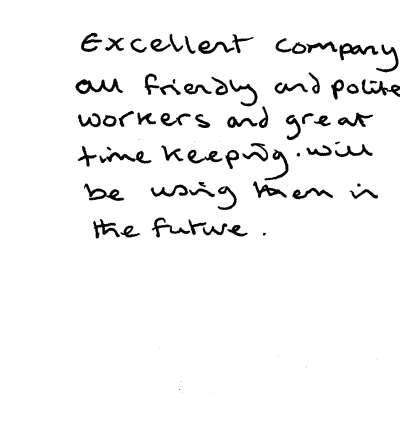 Excellent company
all friendly and polite
workers and great
time keeping. will
be using them in
the future.